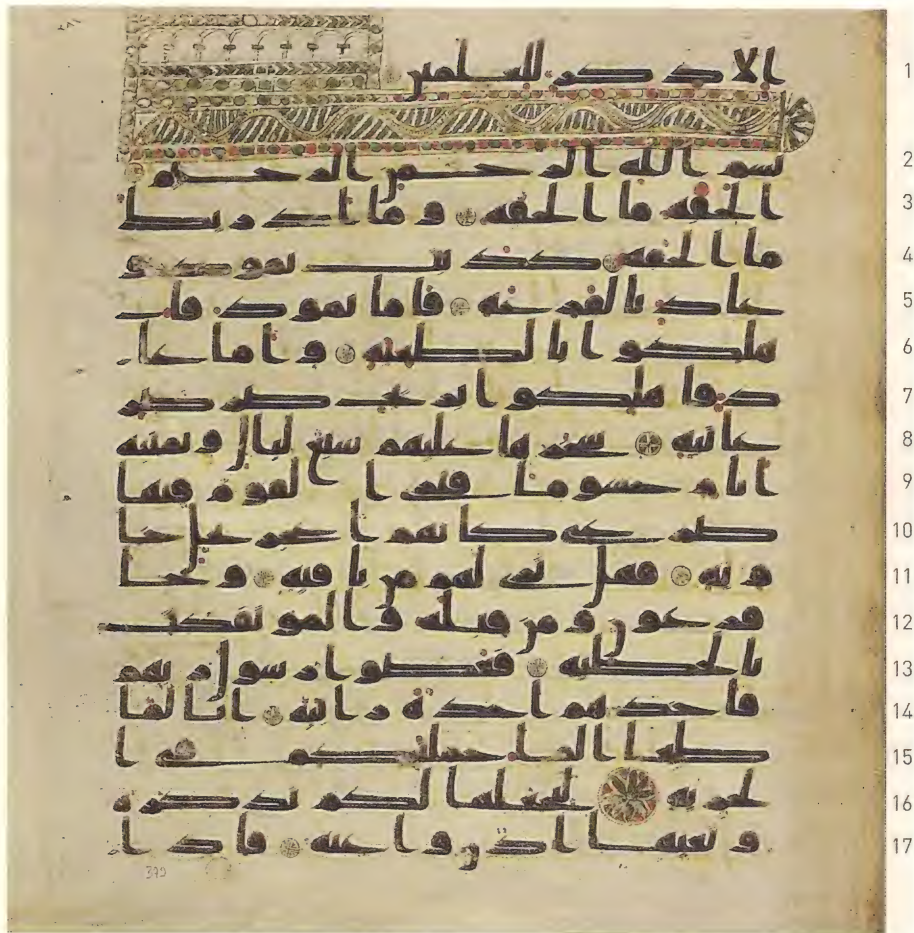 الا ذكر للعلمين 1
بسم الله الرحمن الرحيم 2
الحقه ما الحقه وما ادريك 3
ما الحقه كذبت ثمود و 4
عاد بالقرعه فاما ثمود فا 5
هلكوا بالطغيه واما عا 6
د فاهلكوا بريح صرصر 7
عاتيه سخرها عليهم سبع ليال وثمنيه 8
ايام حسوما فترى القوم فيها 9
صرعى كانهم اعجز نخل خا 10
ويه فهل ترى لهم من باقيه وجا 11
فرعون ومن قبله والموتفكت 12
بالخطيه فعصوا رسول ربهم 13
فاخذهم اخذة رابيه انا لما 14
طغا الما حملنكم في ا 15
لجريه لنجعلها لكم تذكره 16
وتعيها اذن وعيه فاذا 17